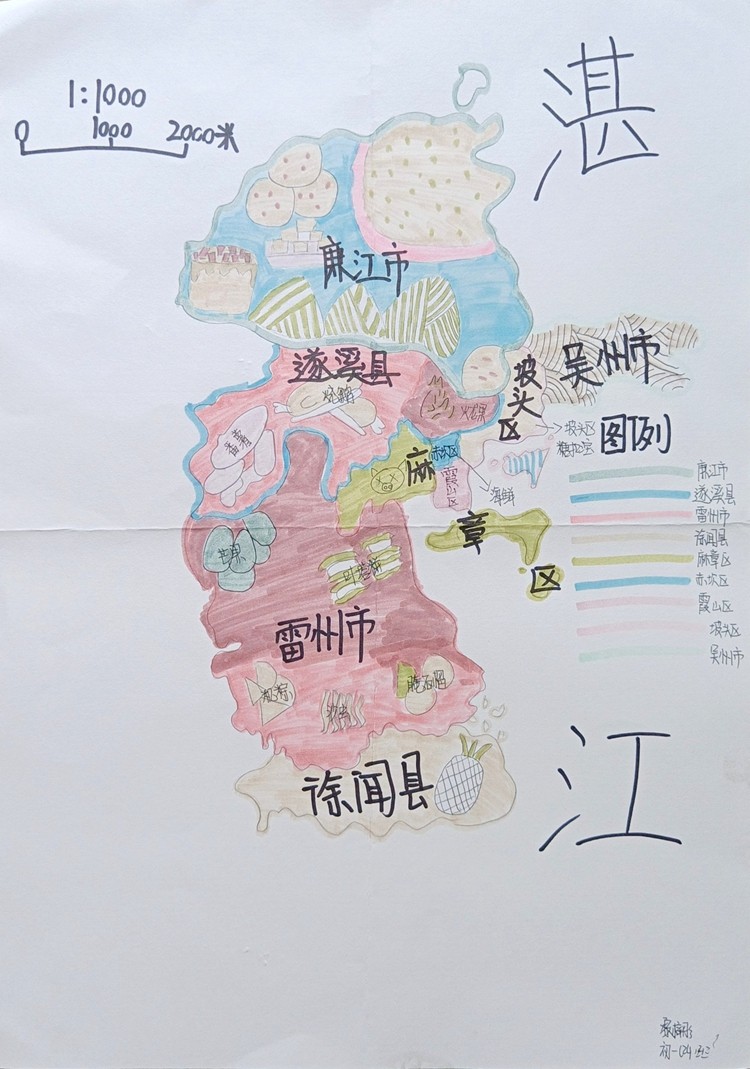 湛
1:1000
0 1000 2000米
廉江市
吴州市
遂溪县
坡头区
烧鹅
火龙果
图例
坡头区
番薯
麻章区
赤坎区
霞山区
海鲜
廉江市
遂溪县
雷州市
徐闻县
麻章区
赤坎区
霞山区
坡头区
吴州市
芒果
叶搭饼
雷州市
沙虫
徐闻县
江